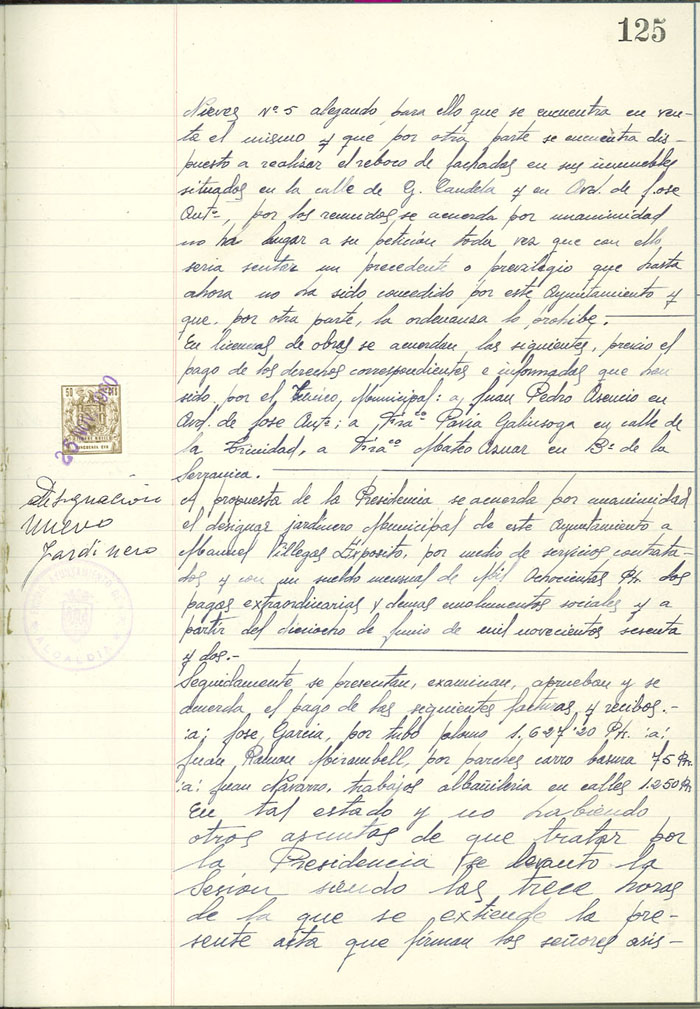 125
Nieves nº 5 alegando para ello que se encuentra en ven-
ta el mismo y que por otra parte se encuentra dis-
puesto a realizar el reboco de fachadas en sus inmuebles
situados en la calle de G. Candela y en Avd. de Jose
Antº, por los reunidos se acuerda por unanimidad
no ha lugar a su petición toda vez que con ello
seria sentar un precedente o previlegio que hasta
ahora no ha sido concedido por este Ayuntamiento y
que, por otra parte, la ordenansa lo prohibe.-
En licencias de obras se acuerdan las siguientes, previo el
pago de los derechos correspondientes e informadas que han
sido por el Tecnico Municipal: a, Juan Pedro Asencio en
Avd. de Jose Antº; a Franco Pavia Galinsoga en calle de
la Trinidad, a Franco Mateo Aznar en Bº de la
Serranica.
Designación
nuevo
Jardinero
A propuesta de la Presidencia se acuerda por unanimidad
el designar jardinero Municipal de este Ayuntamiento a
Manuel Villegas Exposito, por medio de servicios contrata-
dos y con un sueldo mensual de Mil Ochocientas Pts. dos
pagas extraordinarias y demas emolumentos sociales y a
partir del dieciocho de Junio de mil novecientos sesenta
y dos.-
Seguidamente se presentan, examinan, aprueban y se
acuerda el pago de las siguientes facturas y recibos.-
:a: Jose Garcia, por tubo plomo 1.627'20 Pts. :a:
Juan Ramon Mirambell, por parches carro basura 75 Pts.
:a: Juan Navarro, trabajos albañileria en calles 1.250 Pts
En tal estado y no habiendo
otros asuntos de que tratar por
la Presidencia se levanto la
Sesion siendo las trece horas
de la que se extiende la pre-
sente acta que firman los señores asis-
50 CTS
ALCALDIA